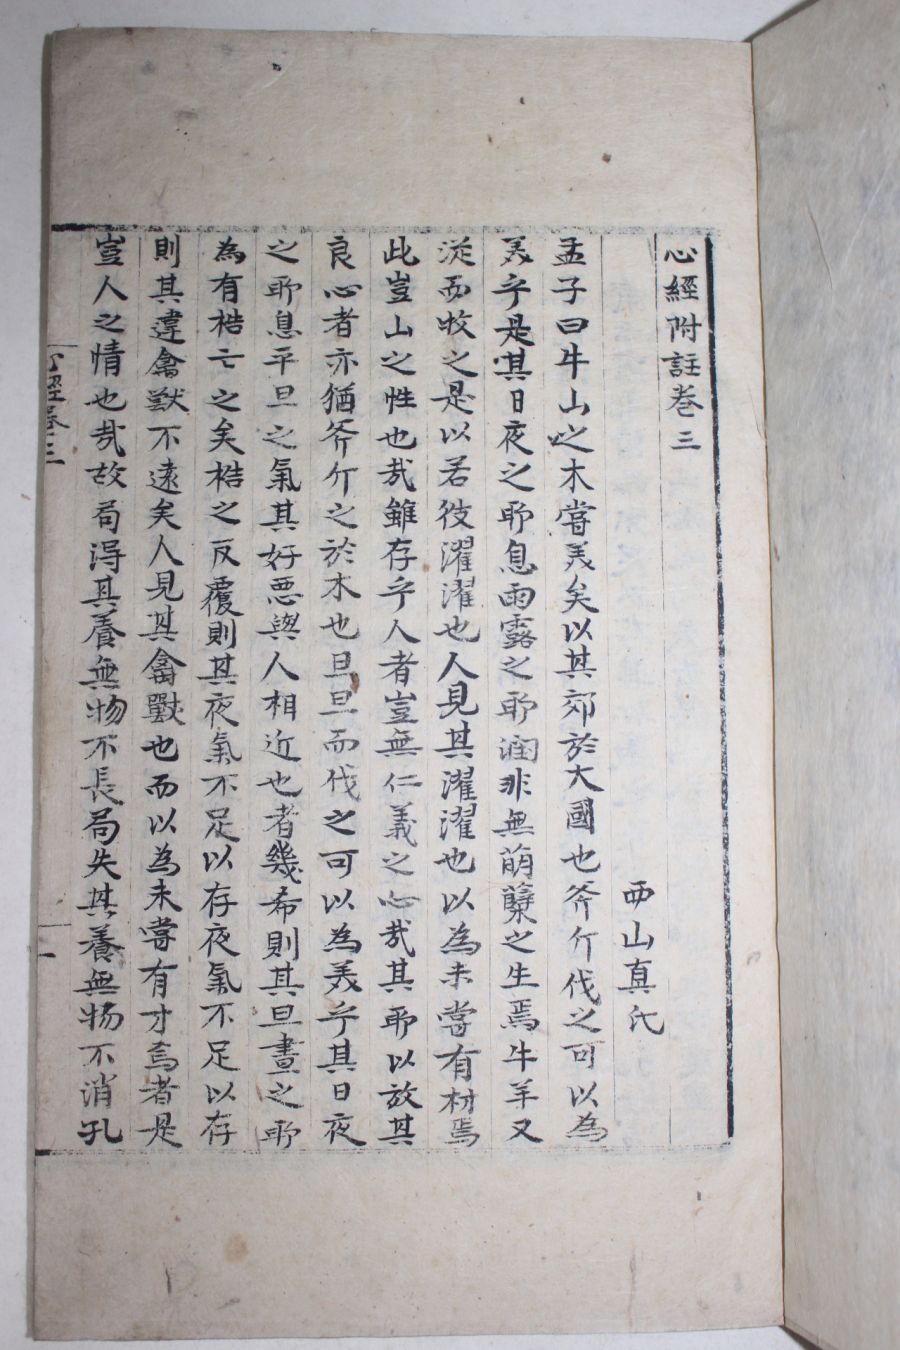 心經附註卷三
西山真氏
孟子曰牛山之木嘗美矣以其郊於大國也斧斤伐之可以為
美乎是其日夜之所息雨露之所潤非無萌蘖之生焉牛羊又
從而牧之是以若彼濯濯也人見其濯濯也以為未嘗有材焉
此豈山之性也哉雖存乎人者豈無仁義之心哉其所以放其
良心者亦猶斧斤之於木也旦旦而伐之可以為美乎其日夜
之所息平旦之氣其好惡與人相近也者幾希則其旦晝之所
為有梏亡之矣梏之反覆則其夜氣不足以存夜氣不足以存
則其違禽獸不遠矣人見其禽獸也而以為未嘗有才焉者是
豈人之情也哉故苟得其養無物不長苟失其養無物不消孔
心經卷三
一